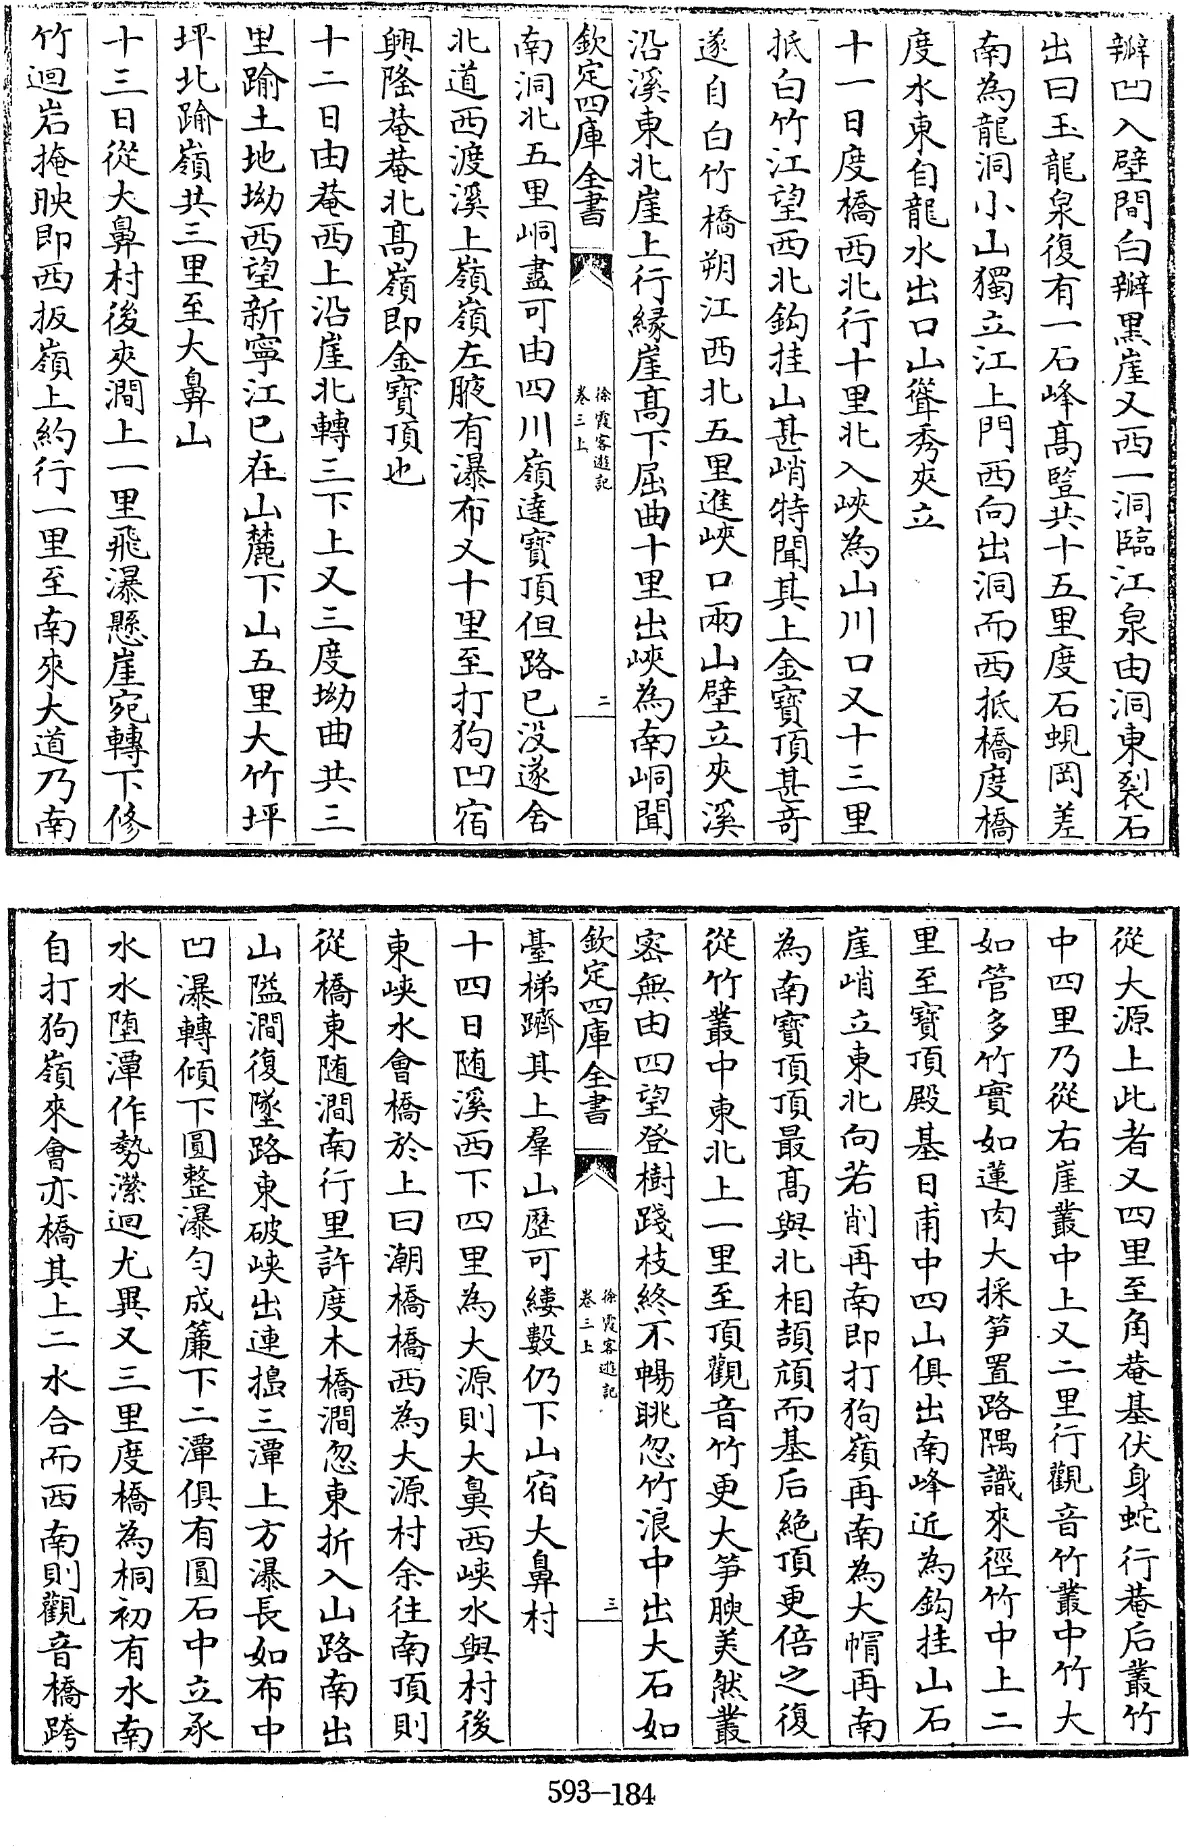 辦凹入壁間白辦黑崖又西一洞臨江泉由洞東裂石
出曰玉龍泉復有一石峰髙豎共十五里度石蜆岡差
南為龍洞小山獨立江上門西向出洞而西抵橋度橋
度水東自龍水出口山聳秀夾立
十一日度橋西北行十里北入峽為山川口又十三里
抵白竹江望西北鈎挂山甚峭特聞其上金寳頂甚奇
遂自白竹橋朔江西北五里進峽口兩山壁立夾溪
沿溪東北崖上行緣崖髙下屈曲十里出峽為南峒聞
欽定四庫全書
徐霞客遊記
卷三上
二
南洞北五里峒盡可由四川嶺達寳頂但路已没遂舍
北道西渡溪上嶺嶺左腋有瀑布又十里至打狗凹宿
興隆菴菴北髙嶺即金寳頂也
十二日由菴西上沿崖北轉三下上又三度坳曲共三
里踰土地坳西望新寧江已在山麓下山五里大竹坪
坪北踰嶺共三里至大鼻山
十三日從大鼻村後夾澗上一里飛瀑懸崖宛轉下修
竹迴岩掩映即西扳嶺上約行一里至南來大道乃南
從大源上此者又四里至角菴基伏身蛇行菴后叢竹
中四里乃從右崖叢中上又二里行觀音竹叢中竹大
如管多竹實如蓮肉大採笋置路隅識來徑竹中上二
里至寳頂殿基日甫中四山俱出南峰近為鈎挂山石
崖峭立東北向若削再南即打狗嶺再南為大帽再南
為南寳頂頂最髙與北相頡頏而基后絶頂更倍之復
從竹叢中東北上一里至頂觀音竹更大笋腴美然叢
宻無由四望登樹踐枝終不暢眺忽竹浪中出大石如
欽定四庫全書
徐霞客遊記
卷三上
三
臺梯躋其上羣山歴可縷數仍下山宿大鼻村
十四日随溪西下四里為大源則大鼻西峽水與村後
東峽水會橋於上曰潮橋橋西為大源村余往南頂則
從橋東随澗南行里許度木橋澗忽東折入山路南出
山隘澗復墜路東破峽出連搗三潭上方瀑長如布中
凹瀑轉傾下圓整瀑匀成簾下二潭俱有圓石中立承
水水墮潭作勢瀠迴尤異又三里度橋為桐初有水南
自打狗嶺來會亦橋其上二水合而西南則觀音橋跨
593-184